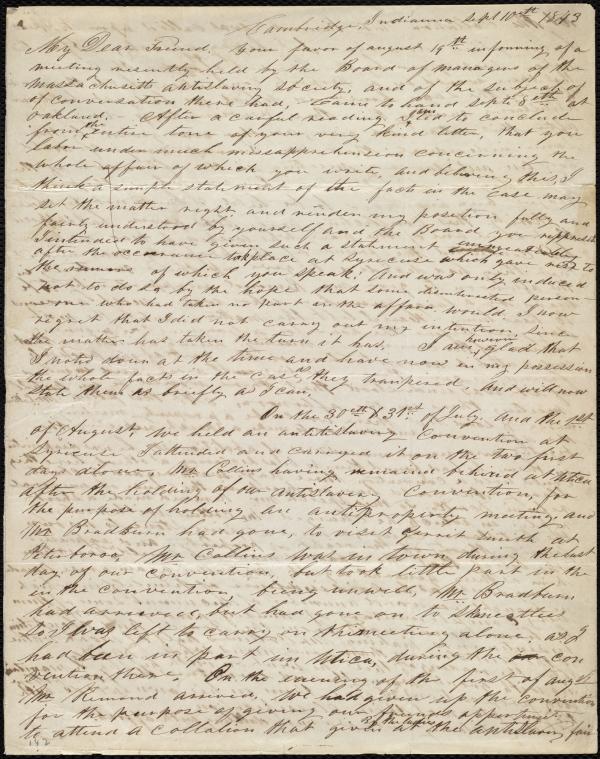 Cambridge, Indianna Sept 10th 1843
My Dear Friend, Your favor of august 19th informing of a
meeting recently held by the Board of managers of the
Massachusetts antislavery society, and of the subject of
of conversation there had, came to hand Sept. 8th at
oakland. After a careful reading I am led to conclude
from the entire tone of your very kind letter, that you
labor under much missapprehension concerning the
whole affair of which you write, and believing this, I
think a simple statement of the facts in the case may
set the matter right and render my position fully and
fairly understood by yourself and the Board you represent
I intended to have given such a statment immediately
after the occurrance tokplace at Syrecuse which gave rise to
the rumors of which you speak. And was only induced
not to do so by the hope that some disintrested person
one who had taken no part in the affair would. I now
regret that I did not carry out my intention, since
the matter has taken the turn it has. I am, however, glad that
I noted down at the time and have now in my possession
the whole facts in the case as they transpered, and will now
state them as briefly as I can,
On the 30th & 31st of July, and the 1st
of August, We held an antislavery convention at
Syrecuse I attended and carreyed it on the two first
days alone, Mr. Collins having remained behind at Utica
after the holding of our antislavery convention, for
the purpose of holding an antiproperty meeting, and
Mr Bradburn had gone, to visit Gerrit Smith at
Peterboroe, Mr. Collins was in town during the last
day of our convention, but took little part in the
in the convention, being unwell, Mr. Bradburn
had arriveed, but had gone on to Skaneatles
so I was left to carry on the meeting alone, as I
had been in part in Utica, during the con
vention there. On the evening of the first of augst
Mr Remond arrived, We had given up the convention
for the purpose of giving our friends opportunity
to attend a collation that given by the ladies at the antislavery fair